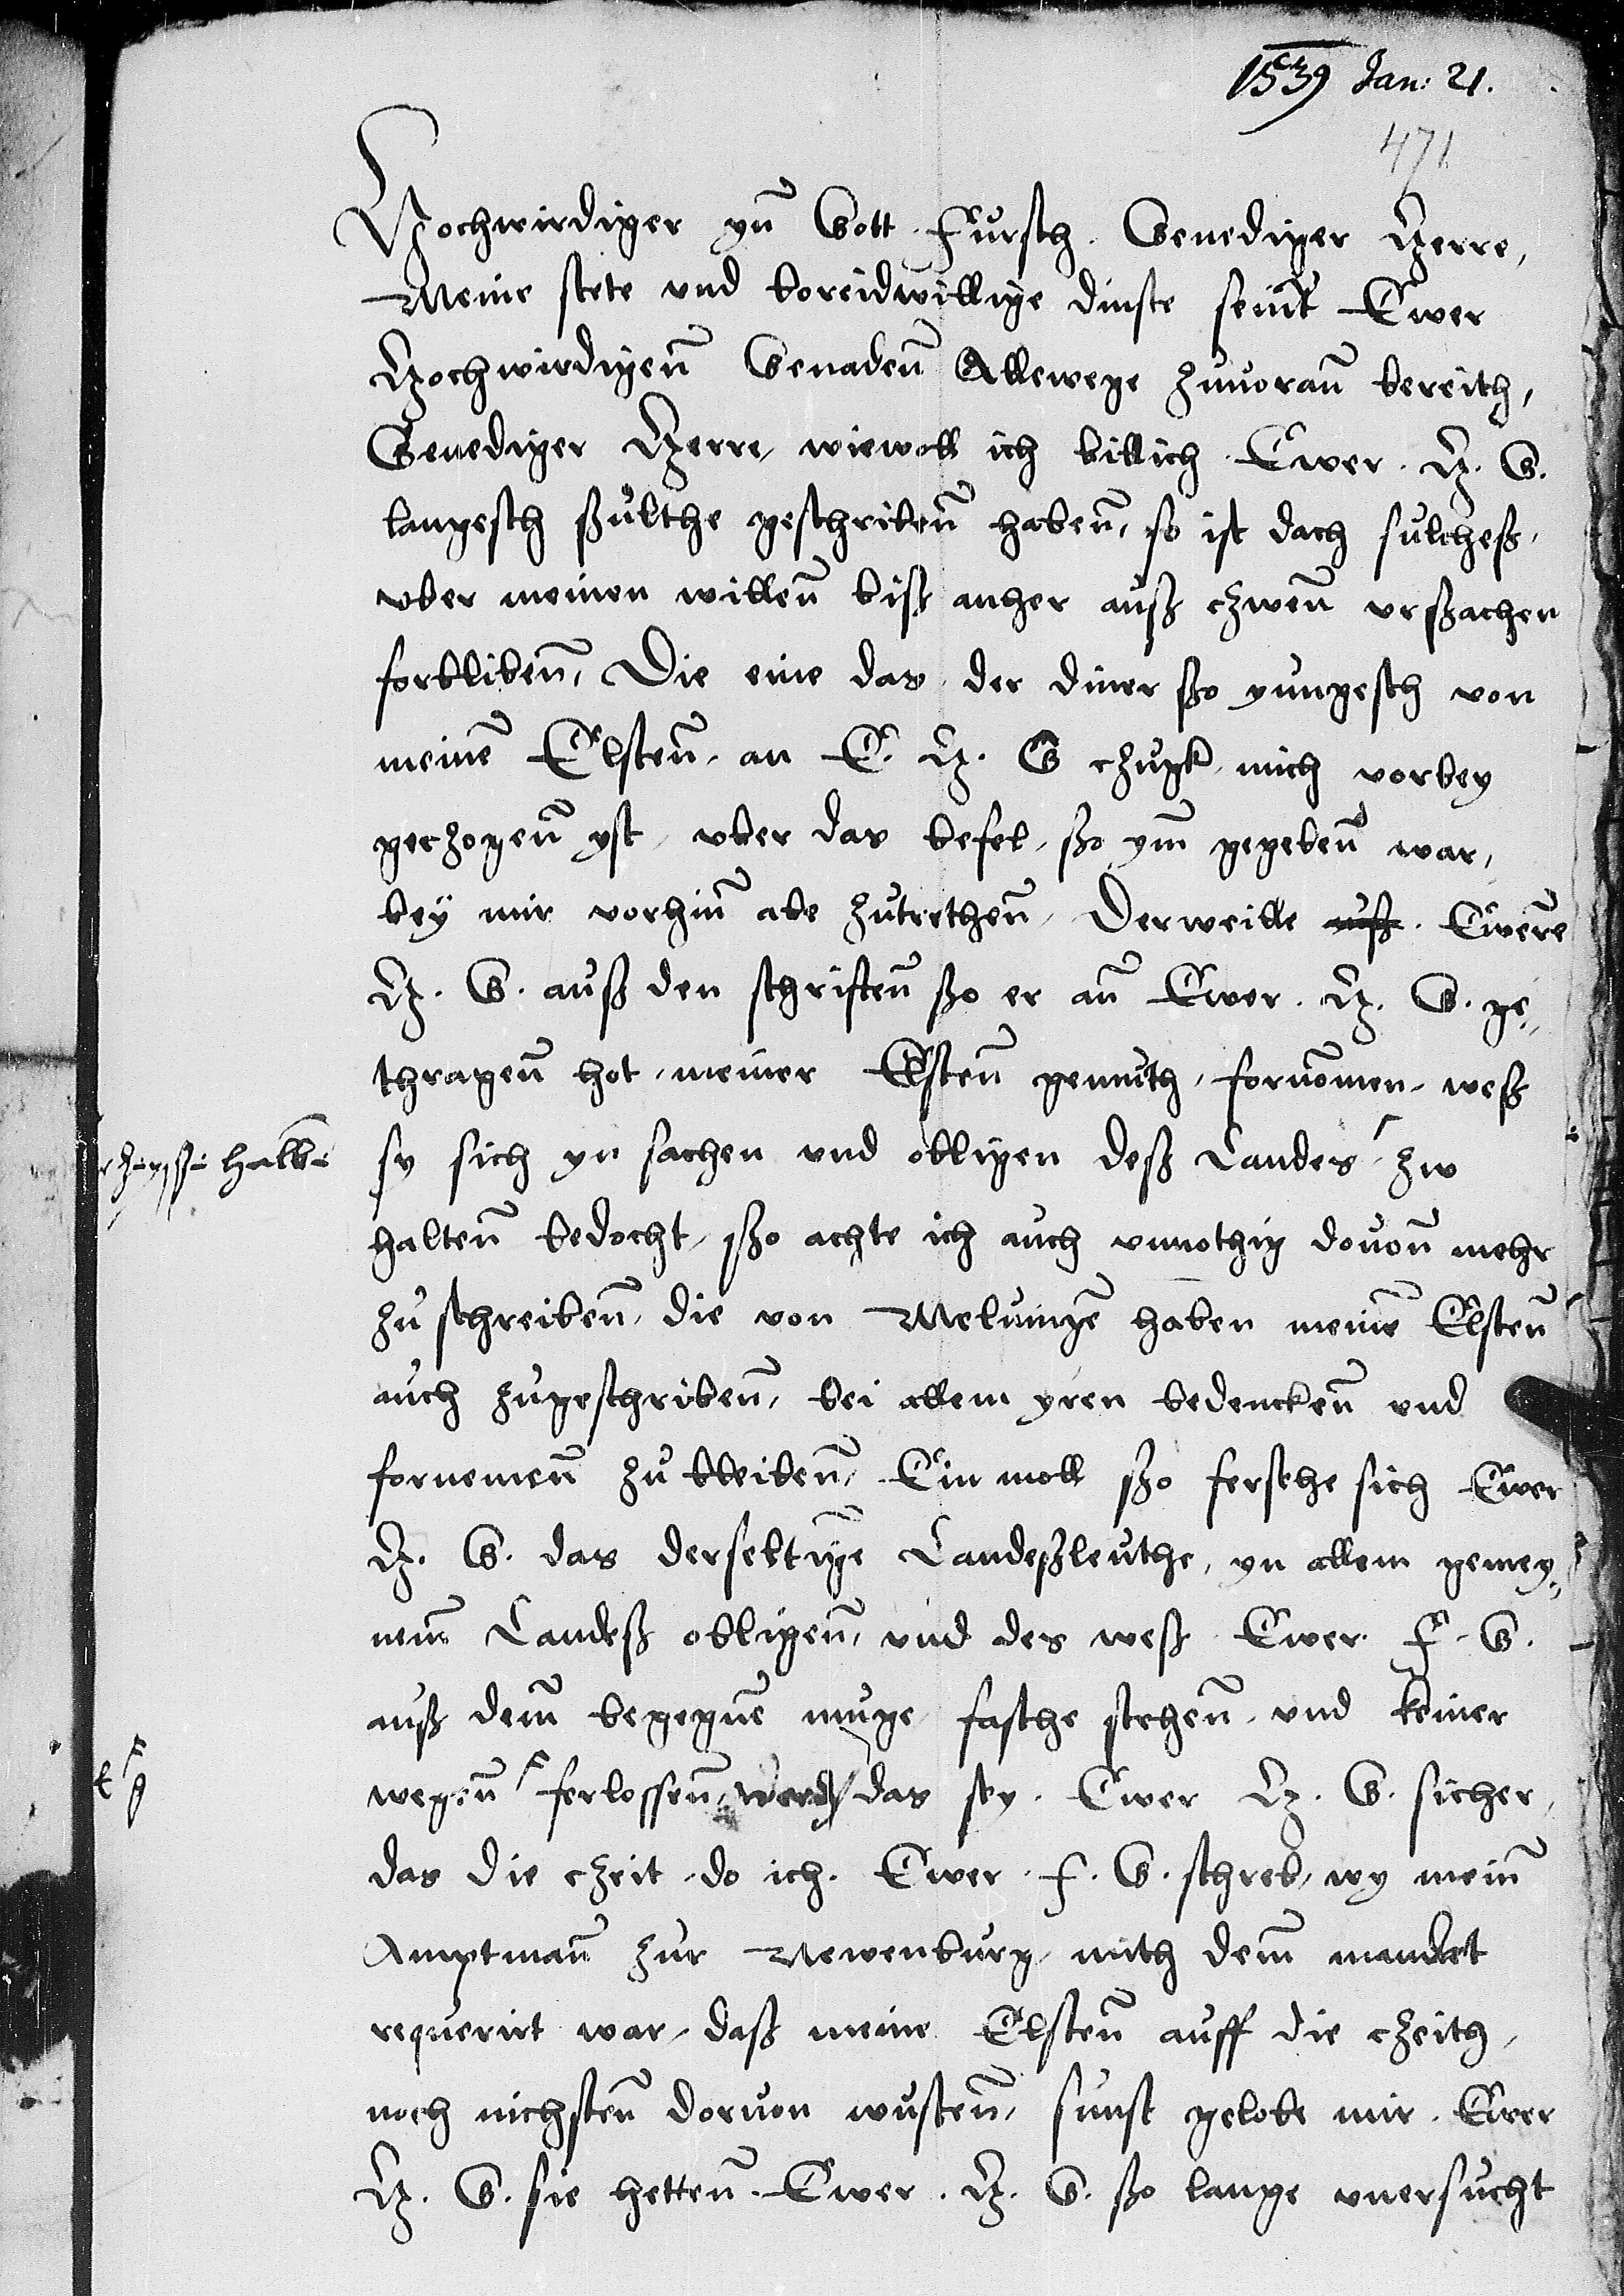 1539 Jan: 21.
471
Hochwirdiger yn Gott Furst Genediger Herre,
Meine stete und boreidwillige dinste seint Ewer
Hochwirdigenn Genadenn Allewege zuvorann bereith,
Genediger Herre, wiewoll ich billich Ewer. H. G.
langesth sulthe geschribenn habenn, so ist doch sulcheß,
uber meinen willenn biß anher auß czwenn ursachen
forblibenn, Die eine das der diner sso yungesth von
meinen Elstenn, an E. H. G czugk, mich vorbey
geczogenn yst, uber das befel, sso ym gegebenn war,
bey mir vorhinn abe zutrethenn, Derweille auß Ewere
H. G. auß den schriftenn sso er ann Ewer. H. G. ge,
thragenn hot, meiner Elstenn gemuth, fornomen, weß
sy sich yn sachen und obligen deß Landes zw
halben
haltenn bedocht, sso achte ich auch unnothig dovonn mehr
zu schreibenn, die von Meluinge haben meinen Elstenn
auch zugeschribenn, bei allem yren bedenckenn und
fornemenn zu bleibenn, Ein moll sso fersehe sich Ewer
H. G. das derselbige Landeßleuthe, yn allem gemey,
nem Landeß obligenn, und des weß Ewer F. G.
auß dem begegnen muge fasthe stehenn, und keiner
wegenn ferlossenn, werd das sey. Ewer H. G. sicher,
E F g
das die czeit do ich. Ewer. F. G. schreb, wy mein
Amptmann zur Newenburg, mith dem mandet
requerirt war, daß meine Elstenn auff die czeith,
noch nichstenn dorvon wustenn, sunst gelobe mir. Ewer
H. G. sie hettenn Ewer. H. G. sso lange unersucht